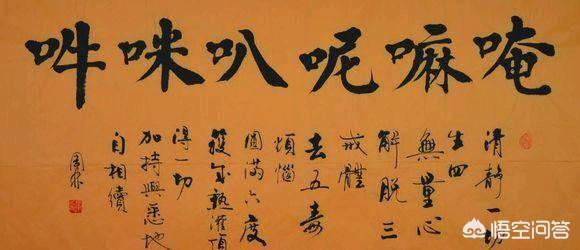 唵嘛呢叭咪吽
清靜一切
生四
無量心
解脫三
戒體
去五毒
煩惱
圓滿六度
獲成熟灌頂
得一切
加持與悉地
自相續
悟空问答